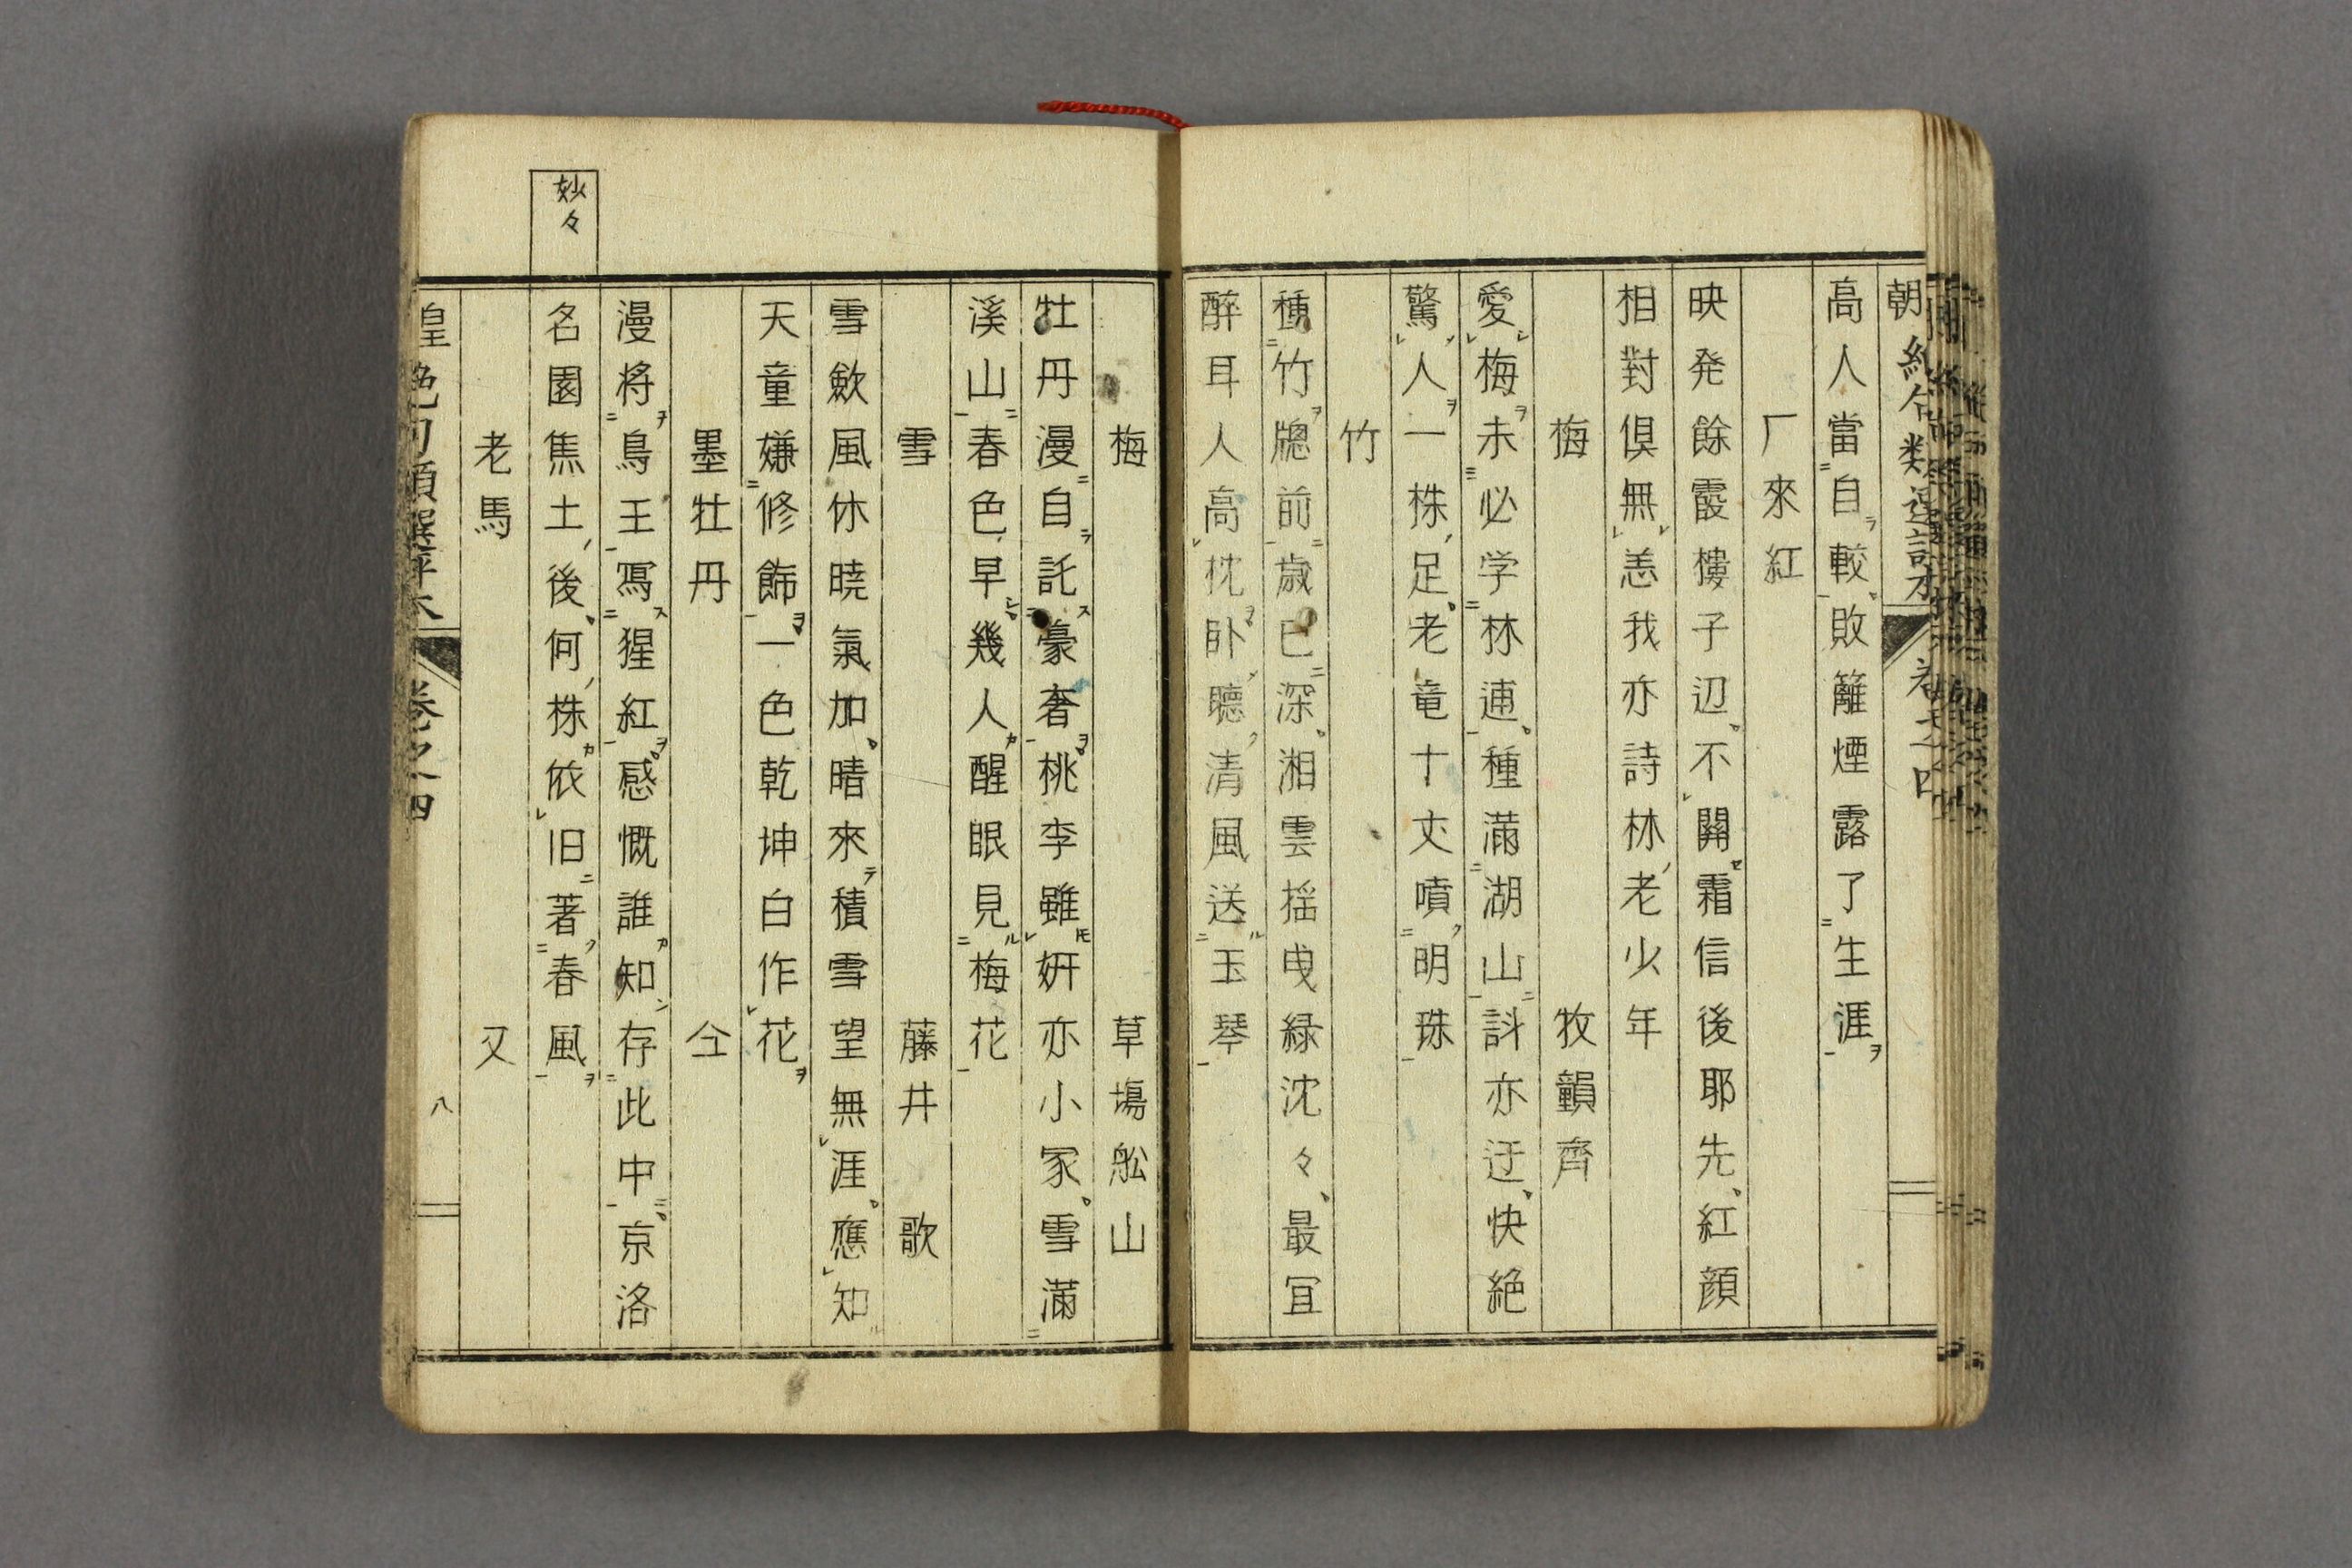 高人當自較敗籬煙露了生涯
厂來紅
映発餘霞樓子辺不開霜信後耶先紅顔
相對倶無恙我亦詩林老少年
梅
牧韻齊
愛梅未必学林逋種滿湖山計亦迂快絶
驚人一株足老竜十丈噴明珠
竹
種竹牕前歳已深湘雲揺曳緑沈々最冝
酔耳人高枕卧聽清風送玉琴
梅
草塲舩山
牡丹漫自託豪奢桃李雖妍亦小家雪滿
溪山春色早幾人醒眼見梅花
雪
藤井 歌
雪歛風休暁氣加晴來積雪望無涯應知
天童嫌修飾一色乾坤白作花
墨牡丹
仝
漫将鳥王冩猩紅感慨誰知存此中京洛
妙々
名園焦土後何株依旧著春風
老馬
又
卷之四
八